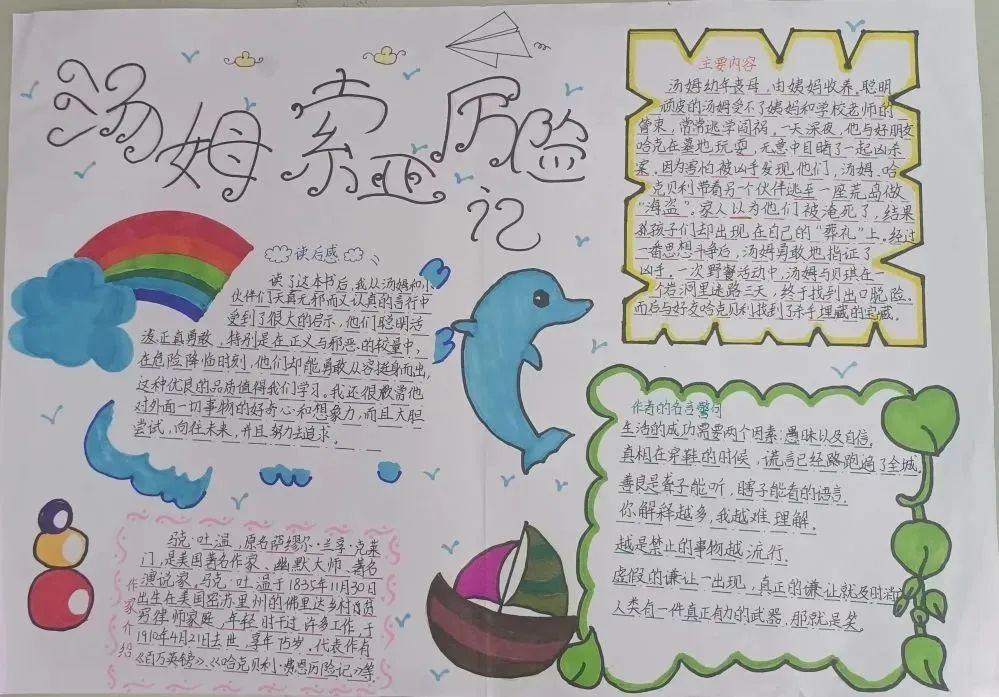 汤姆索亚历险
记
读后感
读了这本书后,我从汤姆和小
伙伴们天真无邪而又认真的言行中
受到了很大的启示,他们聪明活
泼正真勇敢,特别是在正义与邪恶的较量中,
在危险降临时刻,他们却能勇敢从容挺身而出,
这种优良的品质值得我们学习。我还很欣赏他
对外面一切事物的好奇心和想象力,而且大胆
尝试,向往未来,并且努力去追求。
主要内容
汤姆幼年丧母,由姨妈收养。聪明
顽皮的汤姆受不了姨妈和学校老师的
管束,常常逃学闯祸。一天深夜,他与好朋友
哈克在墓地玩耍,无意中目睹了一起凶杀
案。因为害怕被凶手发现他们,汤姆、哈
克贝利带着另个伙伴逃至一座荒岛做
“海盗”。家人以为他们被淹死了,结果
孩子们却出现在自己的“葬礼”上。经过
一番思想斗争后,汤姆勇敢地指证了
凶手。一次野餐活动中,汤姆与贝琪在一
个岩洞里迷路三天,终于找到出口脱险。
而后与好友哈克贝利找到了杀手埋藏的宝藏。
作者的名言警句
生活的成功需要两个因素:愚昧以及自信。
真相在穿鞋的时候,谎言已经路跑遍了全城。
善良是聋子能听,瞎子能看的语言
你解释越多,我越难理解。
越是禁止的事物越流行.
虚假的谦让一出现,真正的谦让就及时
人类有一件真正有力的武器,那就是笑。
作家介绍
马克·吐温,原名萨缪尔·兰亨·克莱
门,是美国著名作家、幽默大师、著名
演说家,马克·吐温于1835年11月30日
出生在美国密苏里州的佛里达乡村的贫
穷律师家庭,年轻时干过许多工作,于
1910年4月21日去世,享年75岁。代表作有
《百万英镑》、《哈克贝利·费恩历险记》等